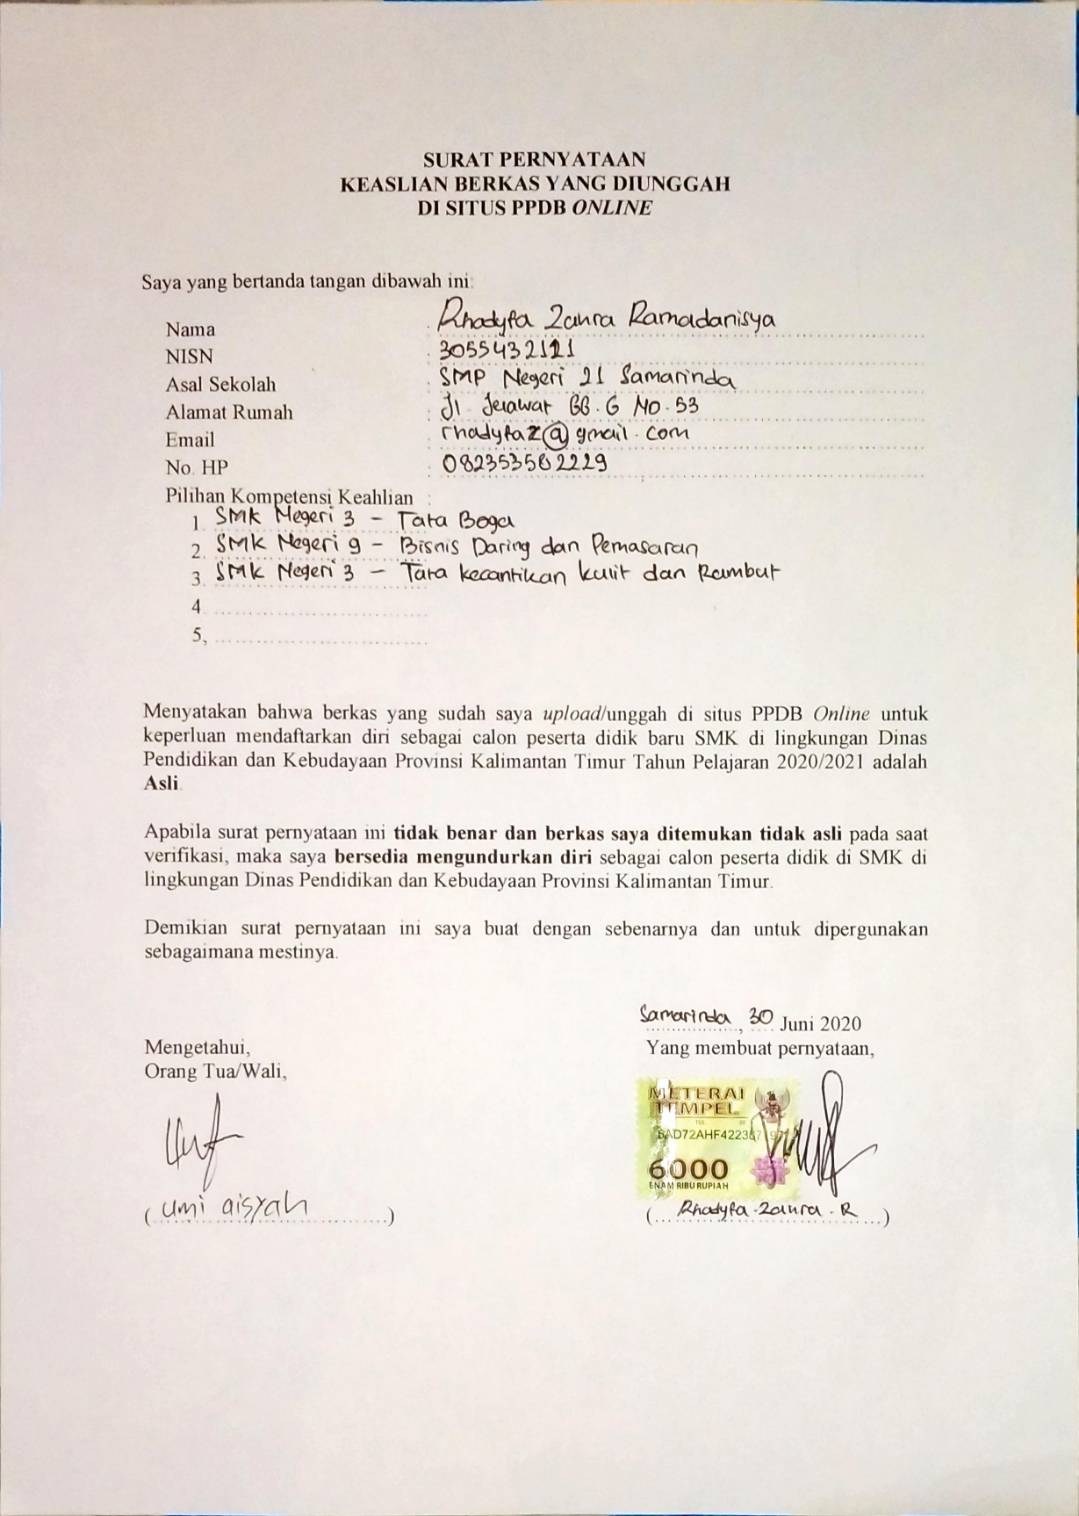 SURAT PERNYATAAN
KEASLIAN BERKAS YANG DIUNGGAH
DI SITUS PPDB ONLINE
Saya yang bertanda tangan dibawah ini:
Nama : Rhadyfa Zanra Ramadanisya
NISN : 3055432121
Asal Sekolah : SMP Negeri 21 Samarinda
Alamat Rumah : Jl. Jerawat BB.G No.53
Email : rhadyfaz@gmail.com
No. HP : 082353562229
Pilihan Kompetensi Keahlian :
1. SMK Negeri 3 - Tata Boga
2. SMK Negeri 9 - Bisnis Daring dan Pemasaran
3. SMK Negeri 3 - Tata kecantikan kulit dan Rambut
4. ..............................
5, ..............................
Menyatakan bahwa berkas yang sudah saya upload/unggah di situs PPDB Online untuk
keperluan mendaftarkan diri sebagai calon peserta didik baru SMK di lingkungan Dinas
Pendidikan dan Kebudayaan Provinsi Kalimantan Timur Tahun Pelajaran 2020/2021 adalah
Asli.
Apabila surat pernyataan ini tidak benar dan berkas saya ditemukan tidak asli pada saat
verifikasi, maka saya bersedia mengundurkan diri sebagai calon peserta didik di SMK di
lingkungan Dinas Pendidikan dan Kebudayaan Provinsi Kalimantan Timur.
Demikian surat pernyataan ini saya buat dengan sebenarnya dan untuk dipergunakan
sebagaimana mestinya.
Samarinda, 30 Juni 2020
Mengetahui,
Orang Tua/Wali,
Yang membuat pernyataan,
METERAI
TEMPEL
6000
ENAM RIBU RUPIAH
(umi aisyah)
(Rhadyfa.Zanra.R)